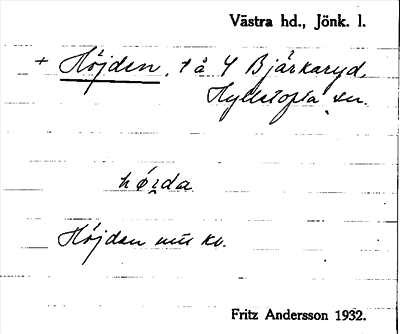 Västra hd., Jönk. l.
+ Höjden, t å 4 Bjärkaryd,
Hylletofta sn.
hö́ɪda
Höjden nu kv.
Fritz Andersson 1932.